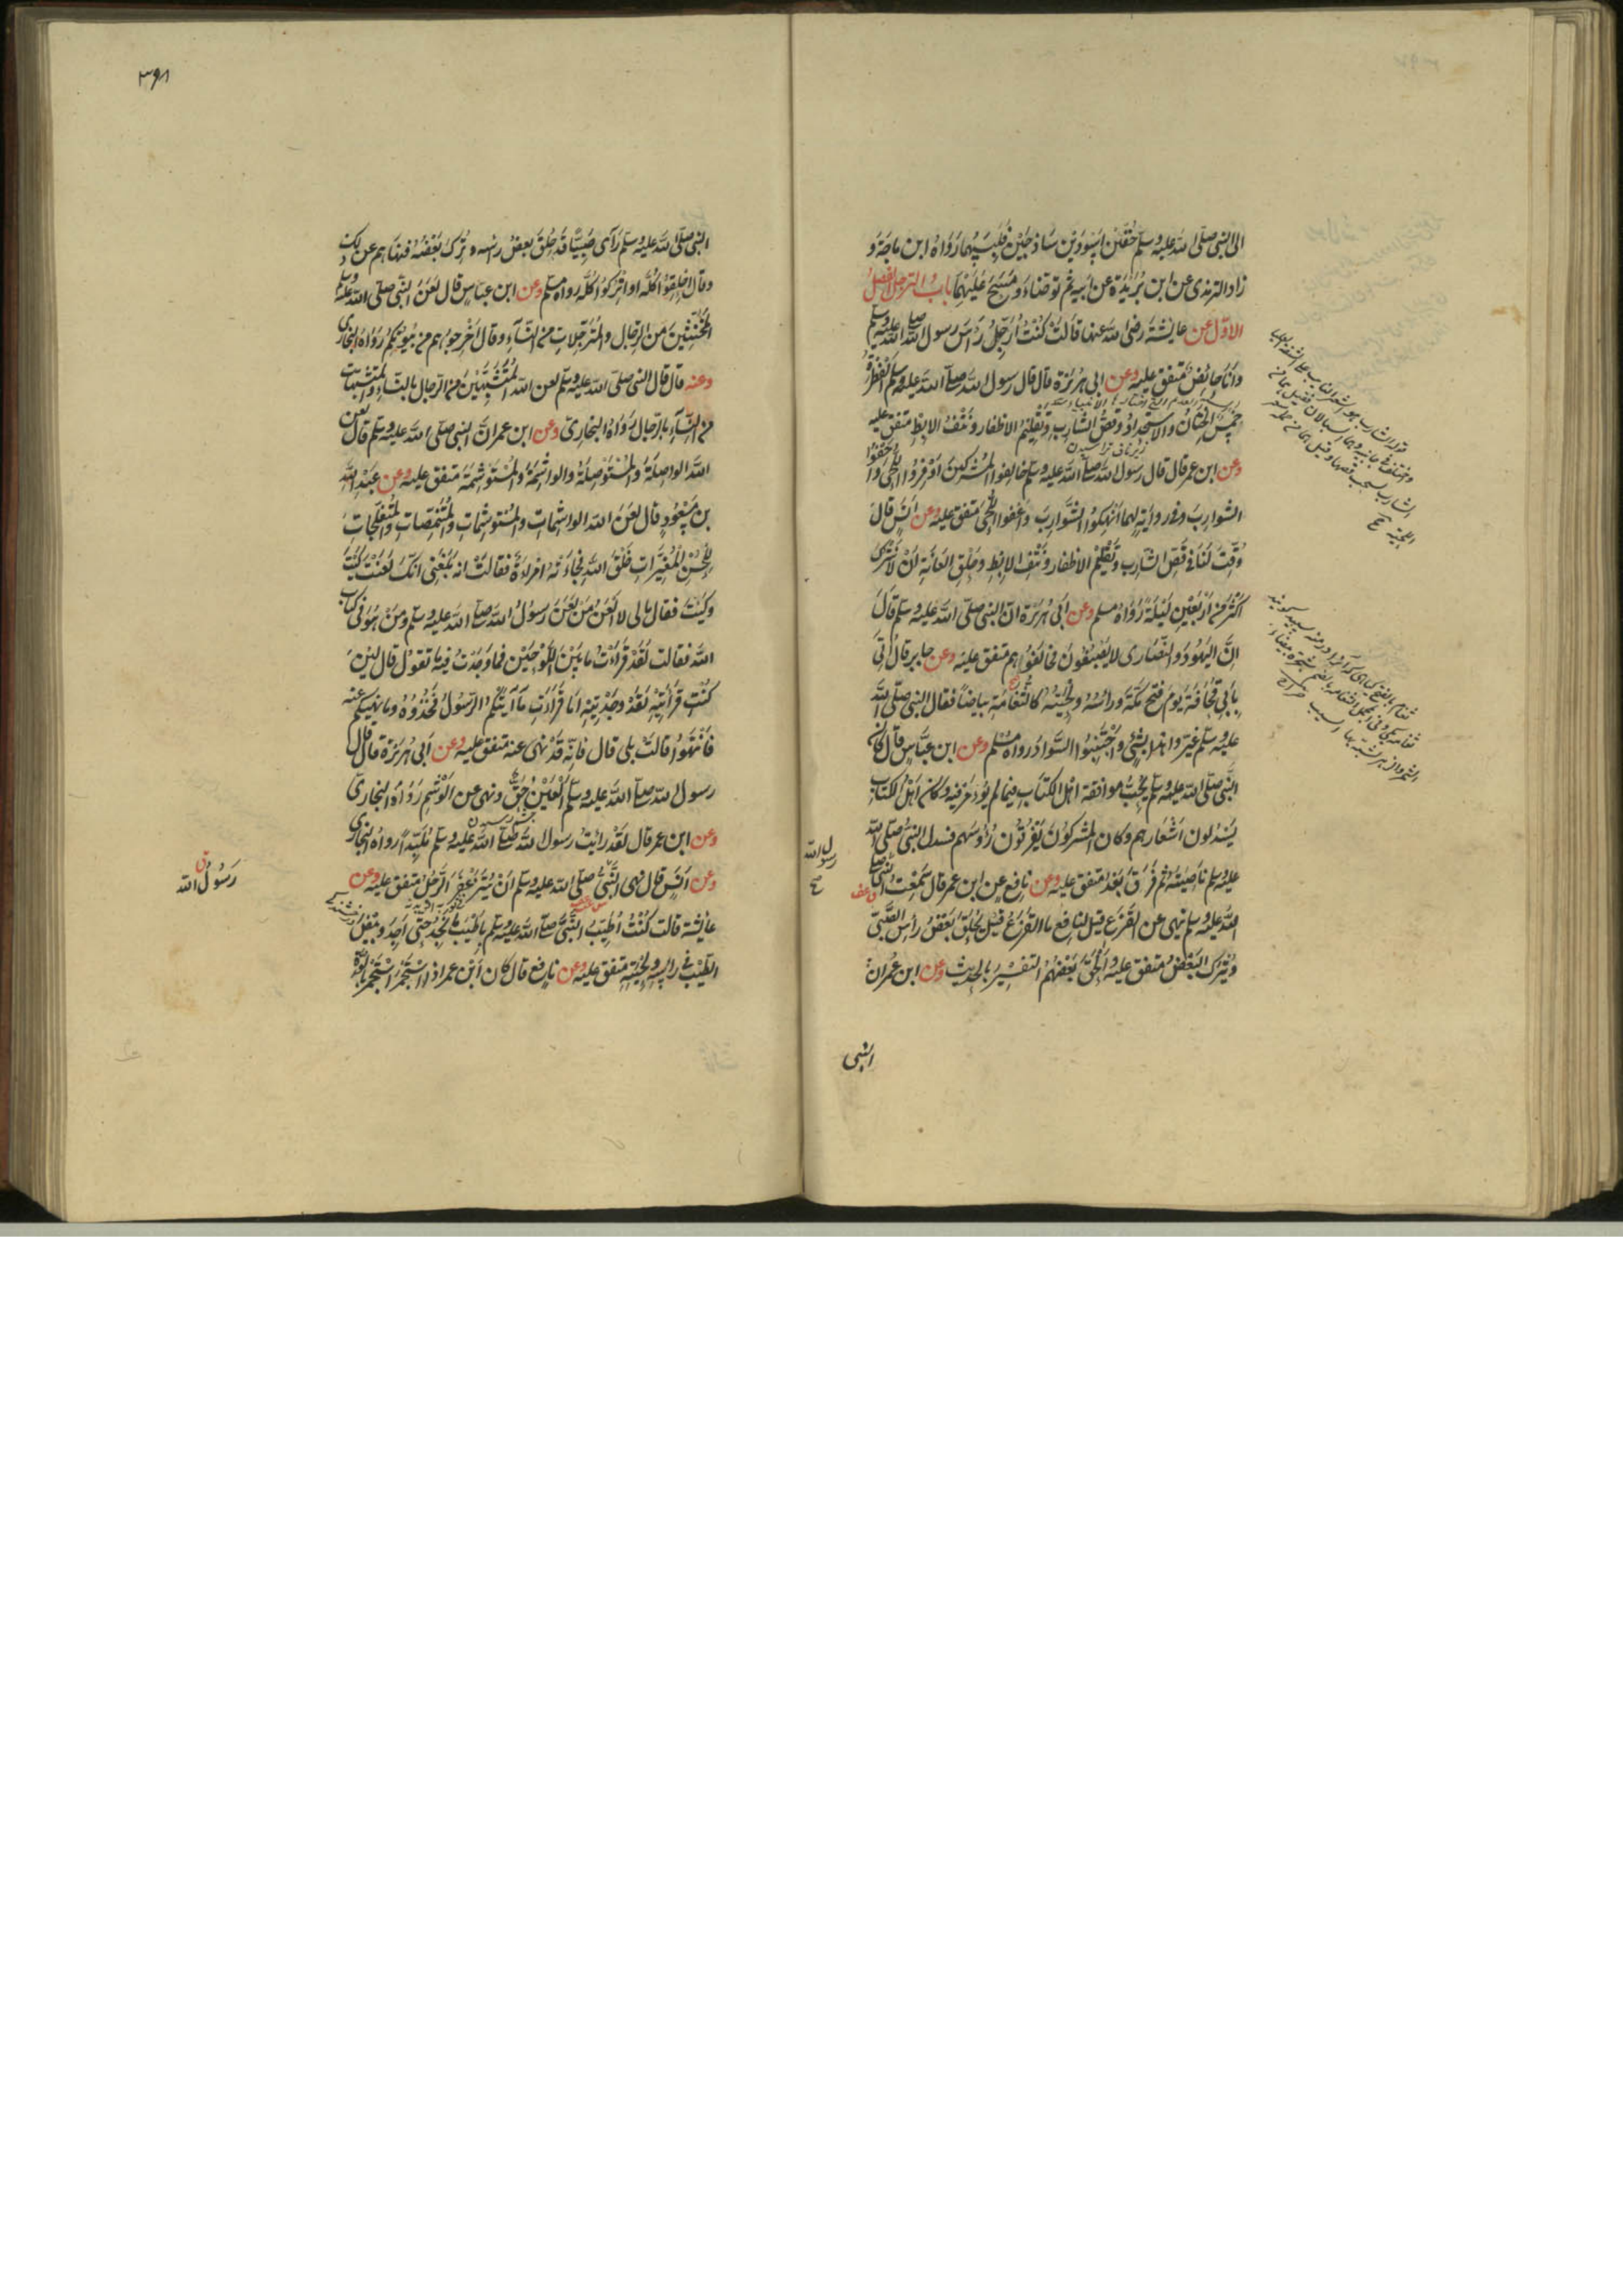 الى النبى صلى الله عليه وسلم خفين اسودين ساذجين فلبسهما رواه ابن ماجة و
زاد الترمذى عن ابن بريدة عن ابيه ثم توضاء ومسح عليهما باب الترجل الفصل
الاول عن عايشة رضى الله عنها قالت كنت ارجل راس رسول الله صلى الله عليه وسلم
وانا حائض متفق عليه وعن ابى هريرة قال قال رسول الله صلى الله عليه وسلم الفطرة
خمس الختان والاستحداد وقص الشارب وتقليم الاظفار ونتف الابط متفق عليه
وعن ابن عمر قال قال رسول الله صلى الله عليه وسلم خالفوا المشركين اوفروا اللحى واحفوا
الشوارب وفى رواية لهما انهكوا الشوارب واعفوا اللحى متفق عليه وعن انس قال
وقت لنا فى قص الشارب وتقليم الاظفار ونتف الابط وحلق العانة ان لا نترك
اكثر من اربعين ليلة رواه مسلم وعن ابى هريرة ان النبى صلى الله عليه وسلم قال
ان اليهود والنصارى لا يصبغون فخالفوا هم متفق عليه وعن جابر قال اتى
بابى قحافة يوم فتح مكة وراسه ولحيته كالثغامة بياضا فقال النبى صلى الله
عليه وسلم غيروا هذا بشئ واجتنبوا السواد رواه مسلم وعن ابن عباس قال كان
النبى صلى الله عليه وسلم يحب موافقة اهل الكتاب فيما لم يؤمر فيه وكان اهل الكتاب
يسدلون اشعارهم وكان المشركون يفرقون رؤسهم فسدل النبى صلى الله
عليه وسلم ناصيته ثم فرق بعد متفق عليه وعن نافع عن ابن عمر قال سمعت النبى صلى
الله عليه وسلم ينهى عن القزع قيل لنافع ما القزع قيل يحلق بعض رأس الصبى
ويترك البعض متفق عليه والحق بعضهم التفسير بالحديث وعن ابن عمر ان
النبى
رسول الله
٣٩٨
النبى صلى الله عليه وسلم رآى صبيا قد حلق بعض راسه وترك بعضه فنهاهم عن ذلك
وقال احلقوا كله او اتركوا كله رواه مسلم وعن ابن عباس قال لعن النبى صلى الله عليه وسلم
المخنثين من الرجال والمترجلات من النساء وقال اخرجوهم من بيوتكم رواه البخارى
وعنه قال قال النبى صلى الله عليه وسلم لعن الله المتشبهين من الرجال بالنساء والمتشبهات
من النساء بالرجال رواه البخارى وعن ابن عمر ان النبى صلى الله عليه وسلم قال لعن
الله الواصلة والمستوصلة والواشمة والمستوشمة متفق عليه وعن عبد الله
بن مسعود قال لعن الله الواشمات والمستوشمات والمتنمصات والمتفلجات
للحسن المغيرات خلق الله فجاءته امراءة فقالت انه بلغنى انك لعنت كيت
وكيت فقال مالى لا العن من لعن رسول الله صلى الله عليه وسلم ومن هو فى كتاب
الله فقالت لقد قراءت ما بين اللوحين فما وجدت فيه ما تقول قال لئن
كنت قرأتيه لقد وجدتيه اما قراءت ما آتيكم الرسول فخذوه وما نهيكم عنه
فانتهوا قالت بلى قال فانه قد نهى عنه متفق عليه وعن ابى هريرة قال قال
رسول الله صلى الله عليه وسلم العين حق ونهى عن الوشم رواه البخارى
وعن ابن عمر قال لقد رايت رسول الله صلى الله عليه وسلم ملبدا رواه البخارى
وعن انس قال نهى النبى صلى الله عليه وسلم ان يتزعفر الرجل متفق عليه وعن
عايشة قالت كنت اطيب النبى صلى الله عليه وسلم باطيب ما نجد حتى اجد وبيص
الطيب فى راسه ولحيته متفق عليه وعن نافع قال كان ابن عمر اذا استجمر استجمر بالوة
رسول الله